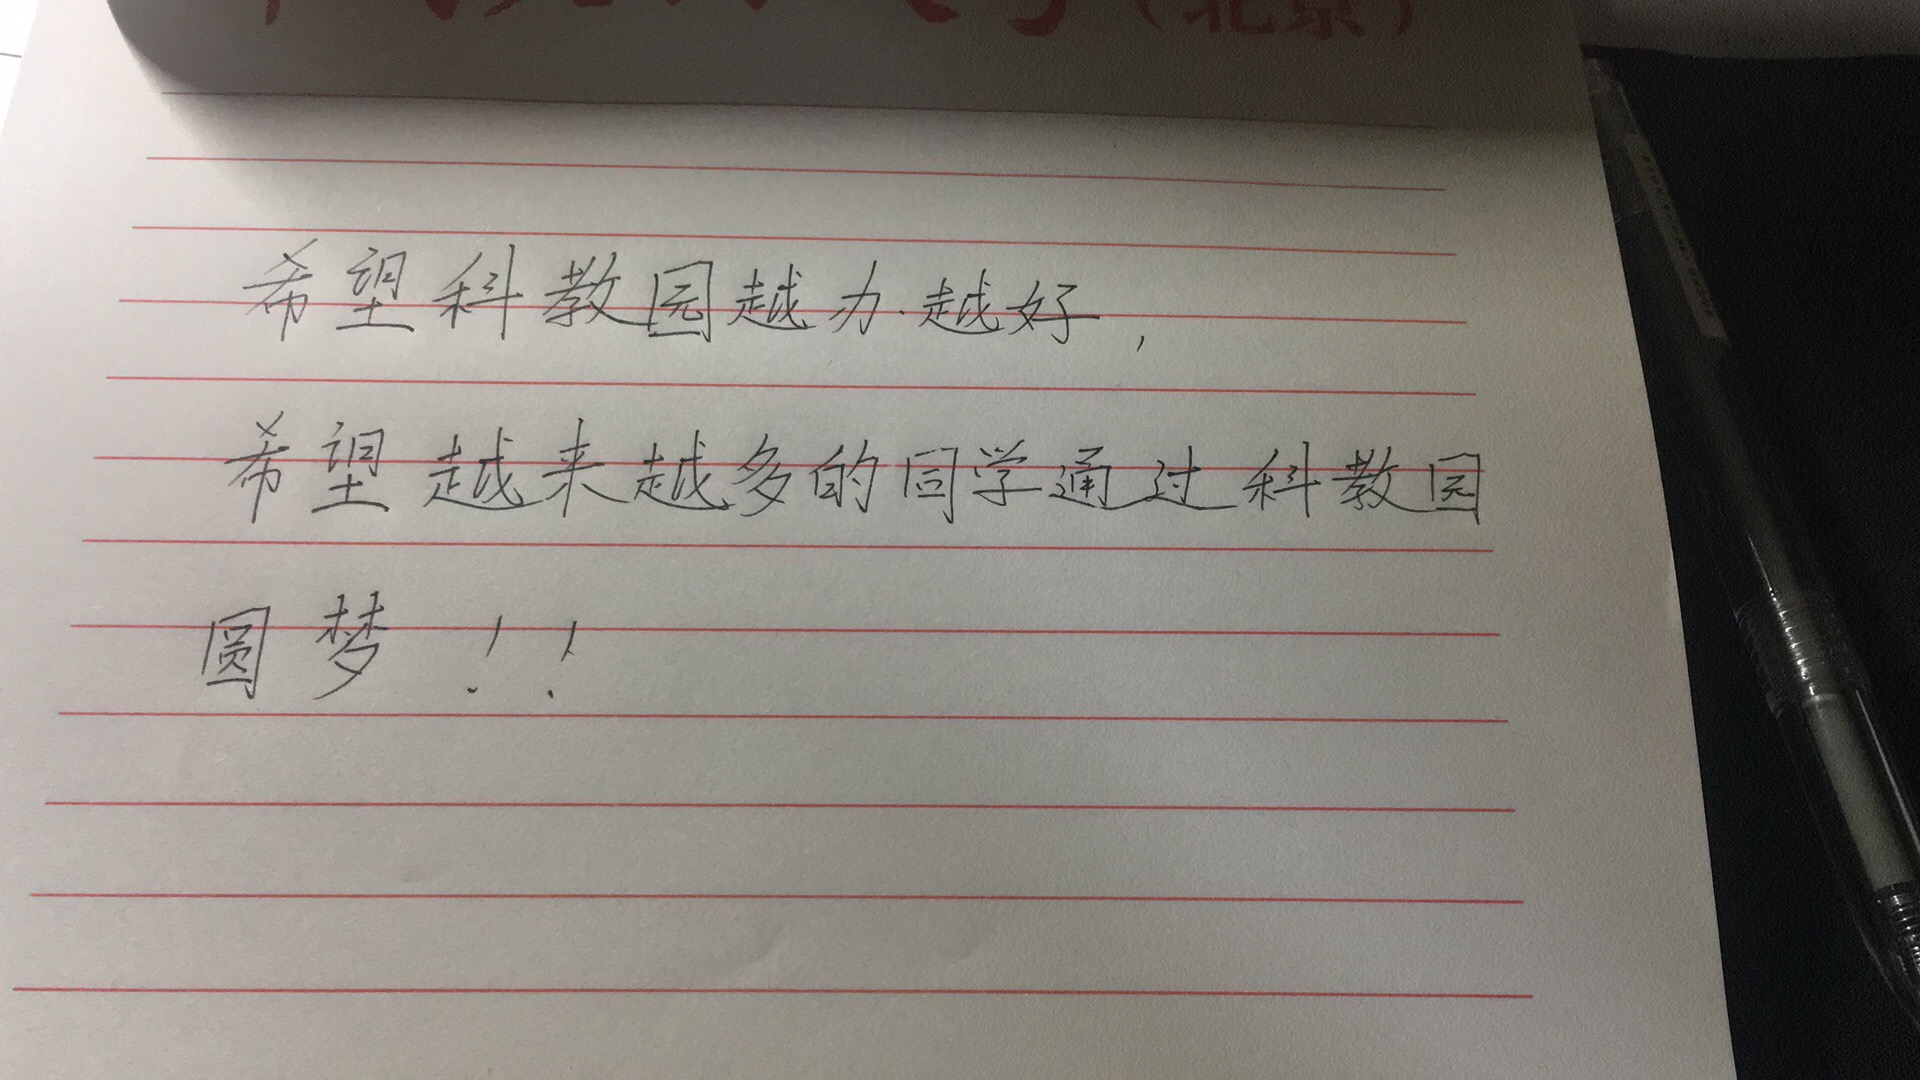 （北京）
希望科教园越办越好，
希望越来越多的同学通过科教园
圆梦！！